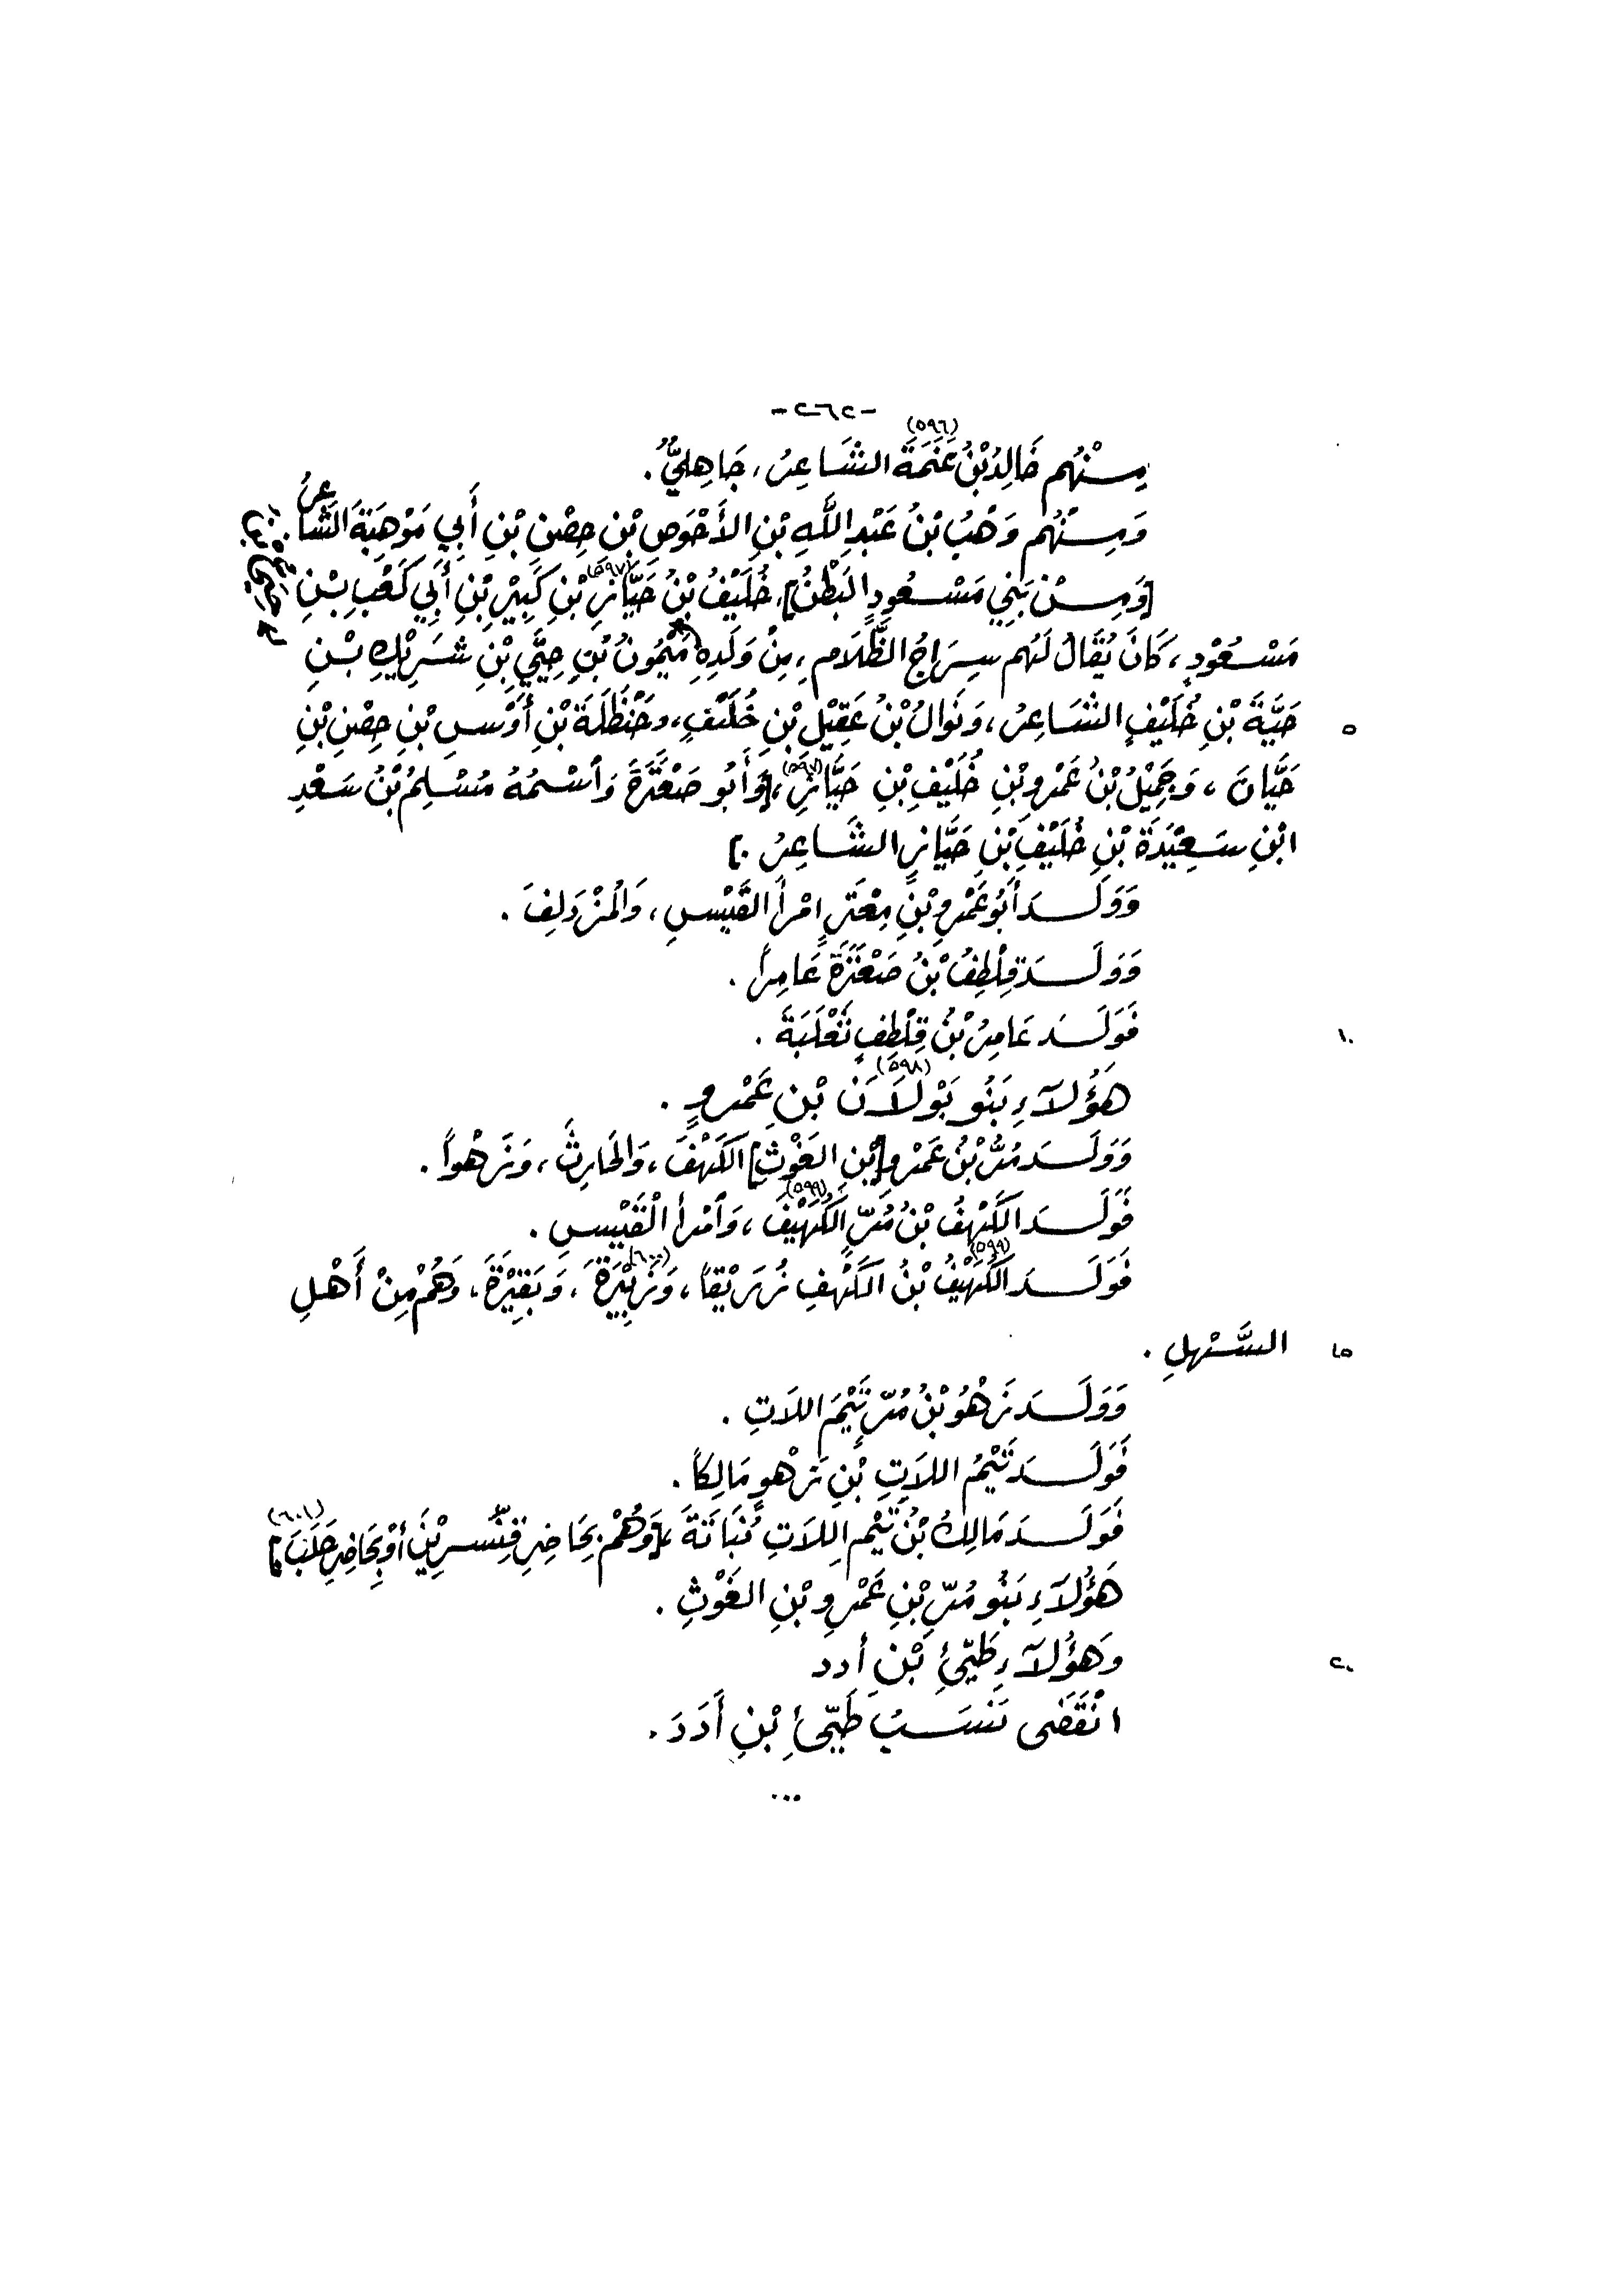 -٢٦٢-
مِنْهُم خَالِدُ بْنُ عَنَمَةَ (٥٩٦) الشَاعِرُ، جَاهِلِيٌّ.
وَمِنْهُم وَهْبُ بْنُ عَبْدِ اللَّهِ بْنِ الأَحْوَصِ بْنِ حِصْنِ بْنِ أَبِي مَوْهَبَةَ الشَّاعِرُ.
[وَمِنْ بَنِي مَسْعُودٍ البَطْنُ]، خُلَيْفُ بْنُ حَيَّانِ (٥٩٧) بْنِ كَبِيْرِ بْنِ أَبِي كَعْبِ بْنِ
مَسْعُوْدٍ، كَانَ يُقَالُ لَهُم سِرَاجُ الظَّلَامِ، مِنْ وَلَدِهِ مَيْمُونُ بْنِ حِيَّيِ بْنِ شَرِيْكِ بْنِ
حَيَّةَ بْنِ خُلَيْفٍ الشَاعِرُ، وَنَوَالُ بْنُ عَقِيْلِ بْنِ خُلَيْفٍ، وحَنْظَلَةَ بْنِ أَوْسِ بْنِ حِصْنِ بْنِ
٥
حَيَّانَ، وَجَمِيْلُ بْنُ عَمْرِو بْنِ خُلَيْفِ بْنِ حَيَّانِ (٥٩٧)، [وَأَبُو صَعْتَرَةَ وَاسْمُهُ مُسْلِمُ بْنُ سَعْدِ
ابْنِ سَعِيْدَةَ بْنِ خُلَيْفِ بْنِ حَيَّانِ الشَّاعِرُ.]
وَوَلَدَ أَبُو عَمْرِو بْنِ مِعْتَرٍ امْرأَ القَيْسِ، وَالمُزْدَلِفَ.
وَوَلَدَ قِلْطِفُ بْنُ صَعْتَرَةَ عَامِراً.
فَوَلَدَ عَامِرُ بْنُ قِلْطِفٍ ثَعْلَبَةَ.
١٠
هَؤُلَآءِ بَنُو بَوْلَانَ (٥٩٨) بْنِ عَمْرٍو.
وَوَلَدَ مُرُّ بْنُ عَمْرِو [بْنِ الغَوْثِ] الكَهْفَ، وَالحَارِثَ، وَنَرهْواً.
فَوَلَدَ الكَهْفُ بْنُ مُرٍّ الكُهَيْفَ (٥٩٩)، وَامْرأَ الْقَيْسِ.
فَوَلَدَ الكُهَيْفُ (٥٩٩) بْنُ الكَهْفِ زُرَيْقاً، وَزَبِيْرَةَ (٦٠٠)، وَبَقِيْرَةَ، وَهُمْ مِنْ أَهْلِ
السَّهْلِ.
١٥
وَوَلَدَ نَرهْوُ بْنُ مُرٍّ تَيْمَ اللَاتِ.
فَوَلَدَ تَيْمُ اللَاتِ بْنِ نَرهْوٍ مَالِكاً.
فَوَلَدَ مَالِكُ بْنُ تَيْمِ اللَاتِ نُبَاتَةَ، [وَهُمْ بِحَاضِرِ قِنَّسْرِيْنَ أَوْ بِحَاضِرِ حَلَبَ] (٦٠١)
هَؤُلَآءِ بَنُو مُرِّ بْنِ عَمْرِو بْنِ الغَوْثِ.
وَهَؤُلَآءِ طَيِّئِ بْنِ أُدد
٢٠
انْقَضَى نَسَبُ طَيِّئِ بْنِ أُدَدَ.
...